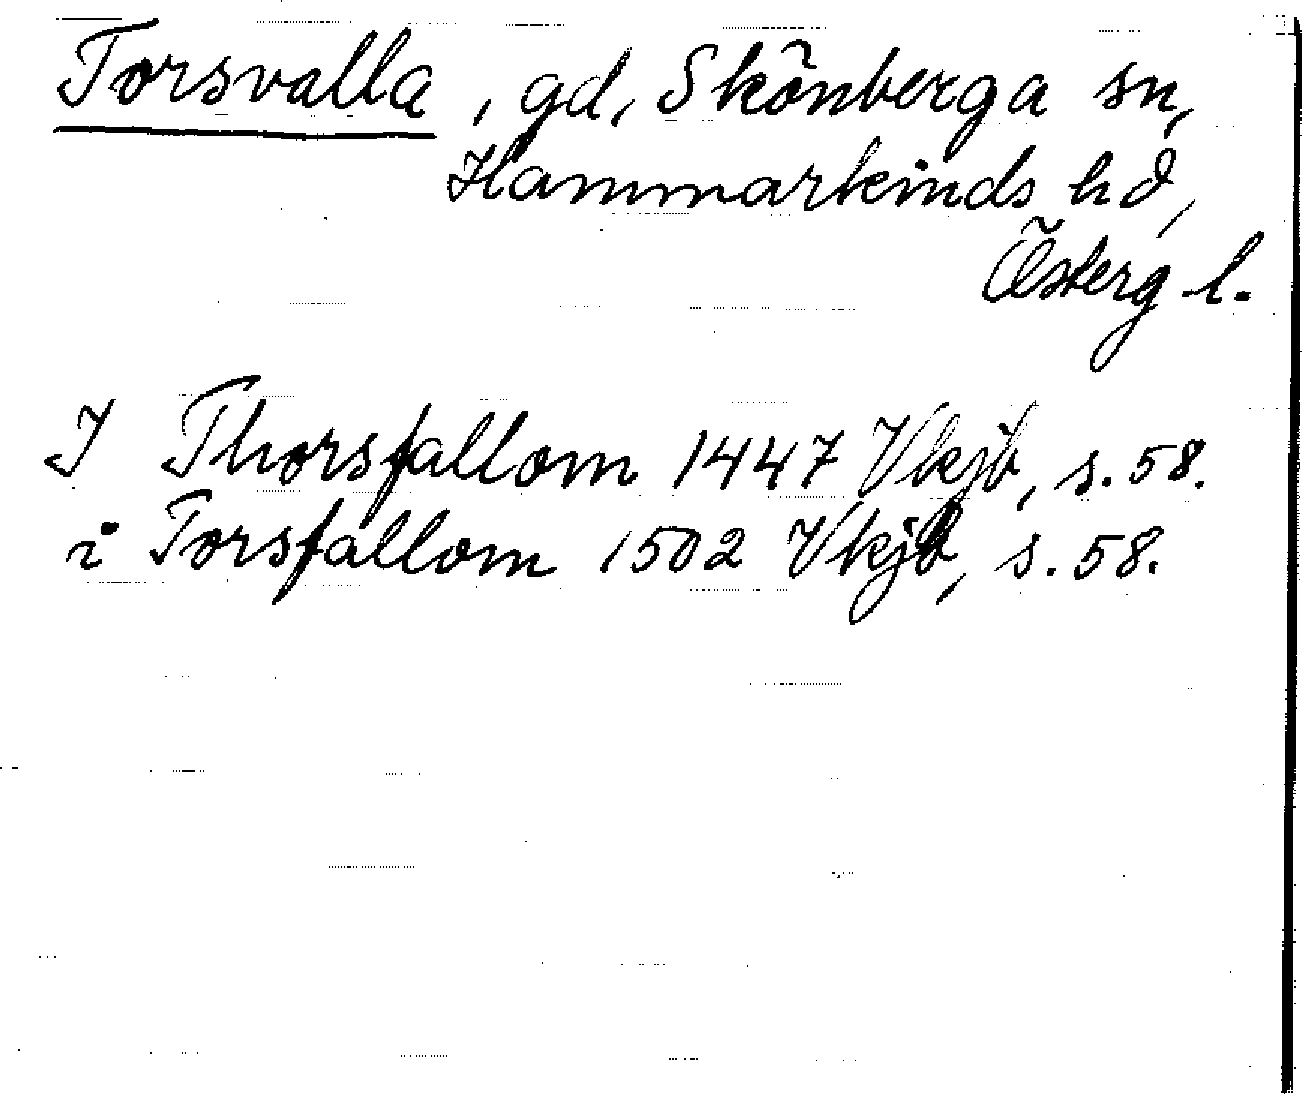 Torsvalla, gd, Skönberga sn,
Hammarkinds hd,
Österg l.
I Thorsfallom 1447 Vkjb, s. 58.
i Torsfallom 1502 Vkjb, s. 58.